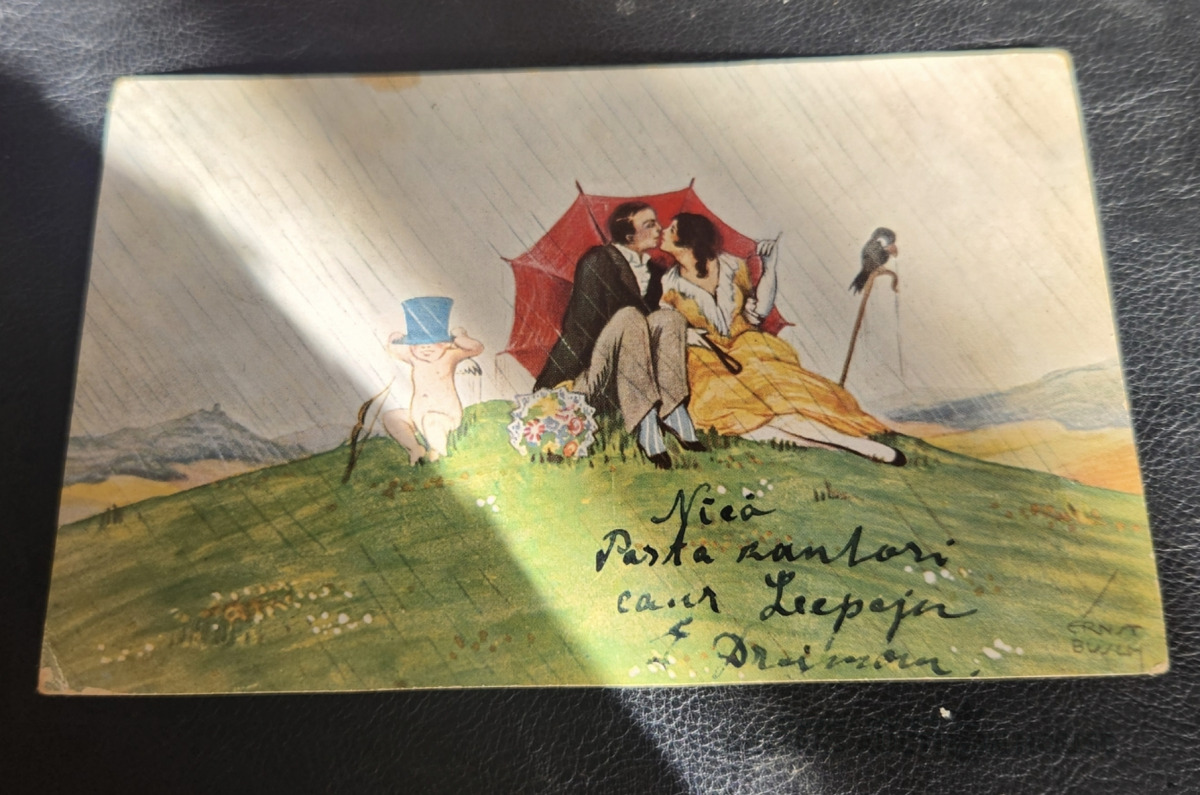 Nicā
Pasta kantori
caur Leepeju
Dreiman.
ERNST
BUSCH